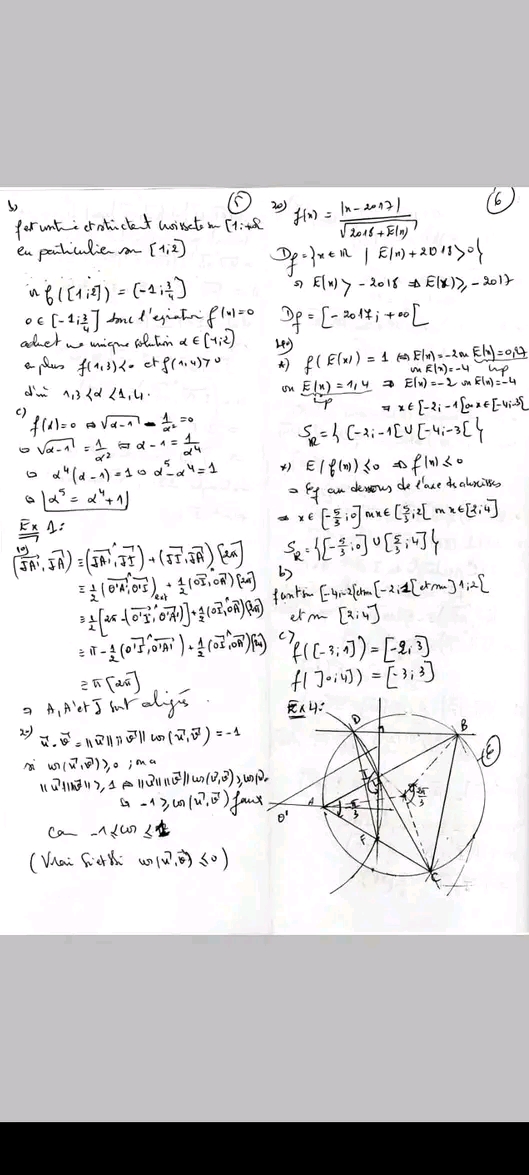 b)
f est continue et strictement croissante sur [1;+∞[
en particulier sur [1;2]
f([1;2]) = [-1;3/4]
0 ∈ [-1;3/4] donc l'equation f(x)=0
admet une unique solution α ∈ [1;2]
en plus f(1,3)<0 et f(1,4)>0
d'où 1,3<α<1,4.
c) f(α)=0 ⇔ √α-1 - 1/α² =0
⇔ √α-1 = 1/α² ⇔ α-1 = 1/α⁴
⇔ α⁴(α-1)=1 ⇔ α⁵-α⁴=1
⇔ α⁵ = α⁴+1
Ex 1:
1º)
(JA', JA) ≡ (JA', JI) + (JI, JA) [2π]
≡ 1/2 (O'A', O'I) + 1/2 (OI, OA) [2π]
≡ 1/2 [2π - (O'I, O'A')] + 1/2 (OI, OA) [2π]
≡ π - 1/2 (O'I, O'A') + 1/2 (OI, OA) [2π]
≡ π [2π]
⇒ A, A' et J sont alignés.
2º) u . v = ||u|| ||v|| cos(u, v) = -1
si cos(u, v) ≥ 0
||u|| ||v|| ≥ 1 ⇔ ||u|| ||v|| cos(u, v) ≥ cos(u, v)
↳ -1 ≥ cos(u, v) faux
Car -1 ≤ cos ≤ 1
(Vrai si cos(u, v) ≤ 0)
5
6
2º) f(x) = |x-2017| / √2018+E(x)
Df = {x ∈ IR | E(x)+2018>0}
⇔ E(x) > -2018 ⇔ E(x) ≥ -2017
Df = [-2017; +∞[
*) f(E(x)) = 1 ⇔ E(x)=-2 ou E(x)=0,17
ou E(x)=-4 imp
ou E(x)=1,4 ⇒ E(x)=-2 ou E(x)=-4
imp
⇒ x ∈ [-2;-1[ ou x ∈ [-4;-3[
S_R = { [-2;-1[ ∪ [-4;-3[ }
*) E(f(x)) ≤ 0 ⇒ f(x) ≤ 0
⇒ ξf au dessous de l'axe des abscisses
⇒ x ∈ [-5/3;0] ou x ∈ [5/3;2[ ou x ∈ [2;4]
S_R = { [-5/3;0] ∪ [5/3;4] }
b)
f cont sur [-4;-2[ et sur [-2;1[ et sur ]1;2[
et sur [2;4]
c)
f([-3;1]) = [-2;3]
f(]0;4]) = [-3;3]
Ex 4:
D
B
ξ
I
A
π/3
2π/3
O'
F
C